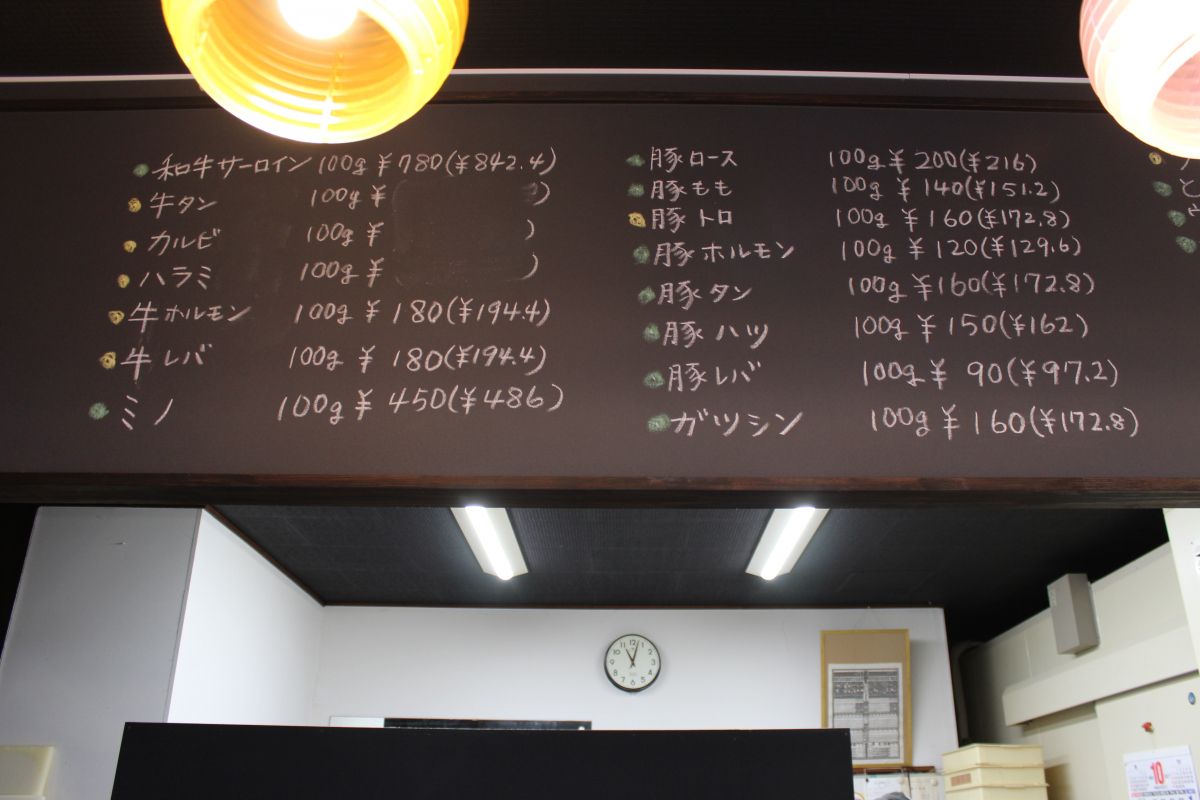 和牛サーロイン 100g ¥780(¥842.4)
牛タン 100g ¥ )
カルビ 100g ¥ )
ハラミ 100g ¥ )
牛ホルモン 100g ¥180(¥194.4)
牛レバ 100g ¥180(¥194.4)
ミノ 100g ¥450(¥486)
豚ロース 100g ¥200(¥216)
豚もも 100g ¥140(¥151.2)
豚トロ 100g ¥160(¥172.8)
豚ホルモン 100g ¥120(¥129.6)
豚タン 100g ¥160(¥172.8)
豚ハツ 100g ¥150(¥162)
豚レバ 100g ¥90(¥97.2)
ガツシン 100g ¥160(¥172.8)
と
12 1 2 3 4 5 6 7 8 9 10 11
10